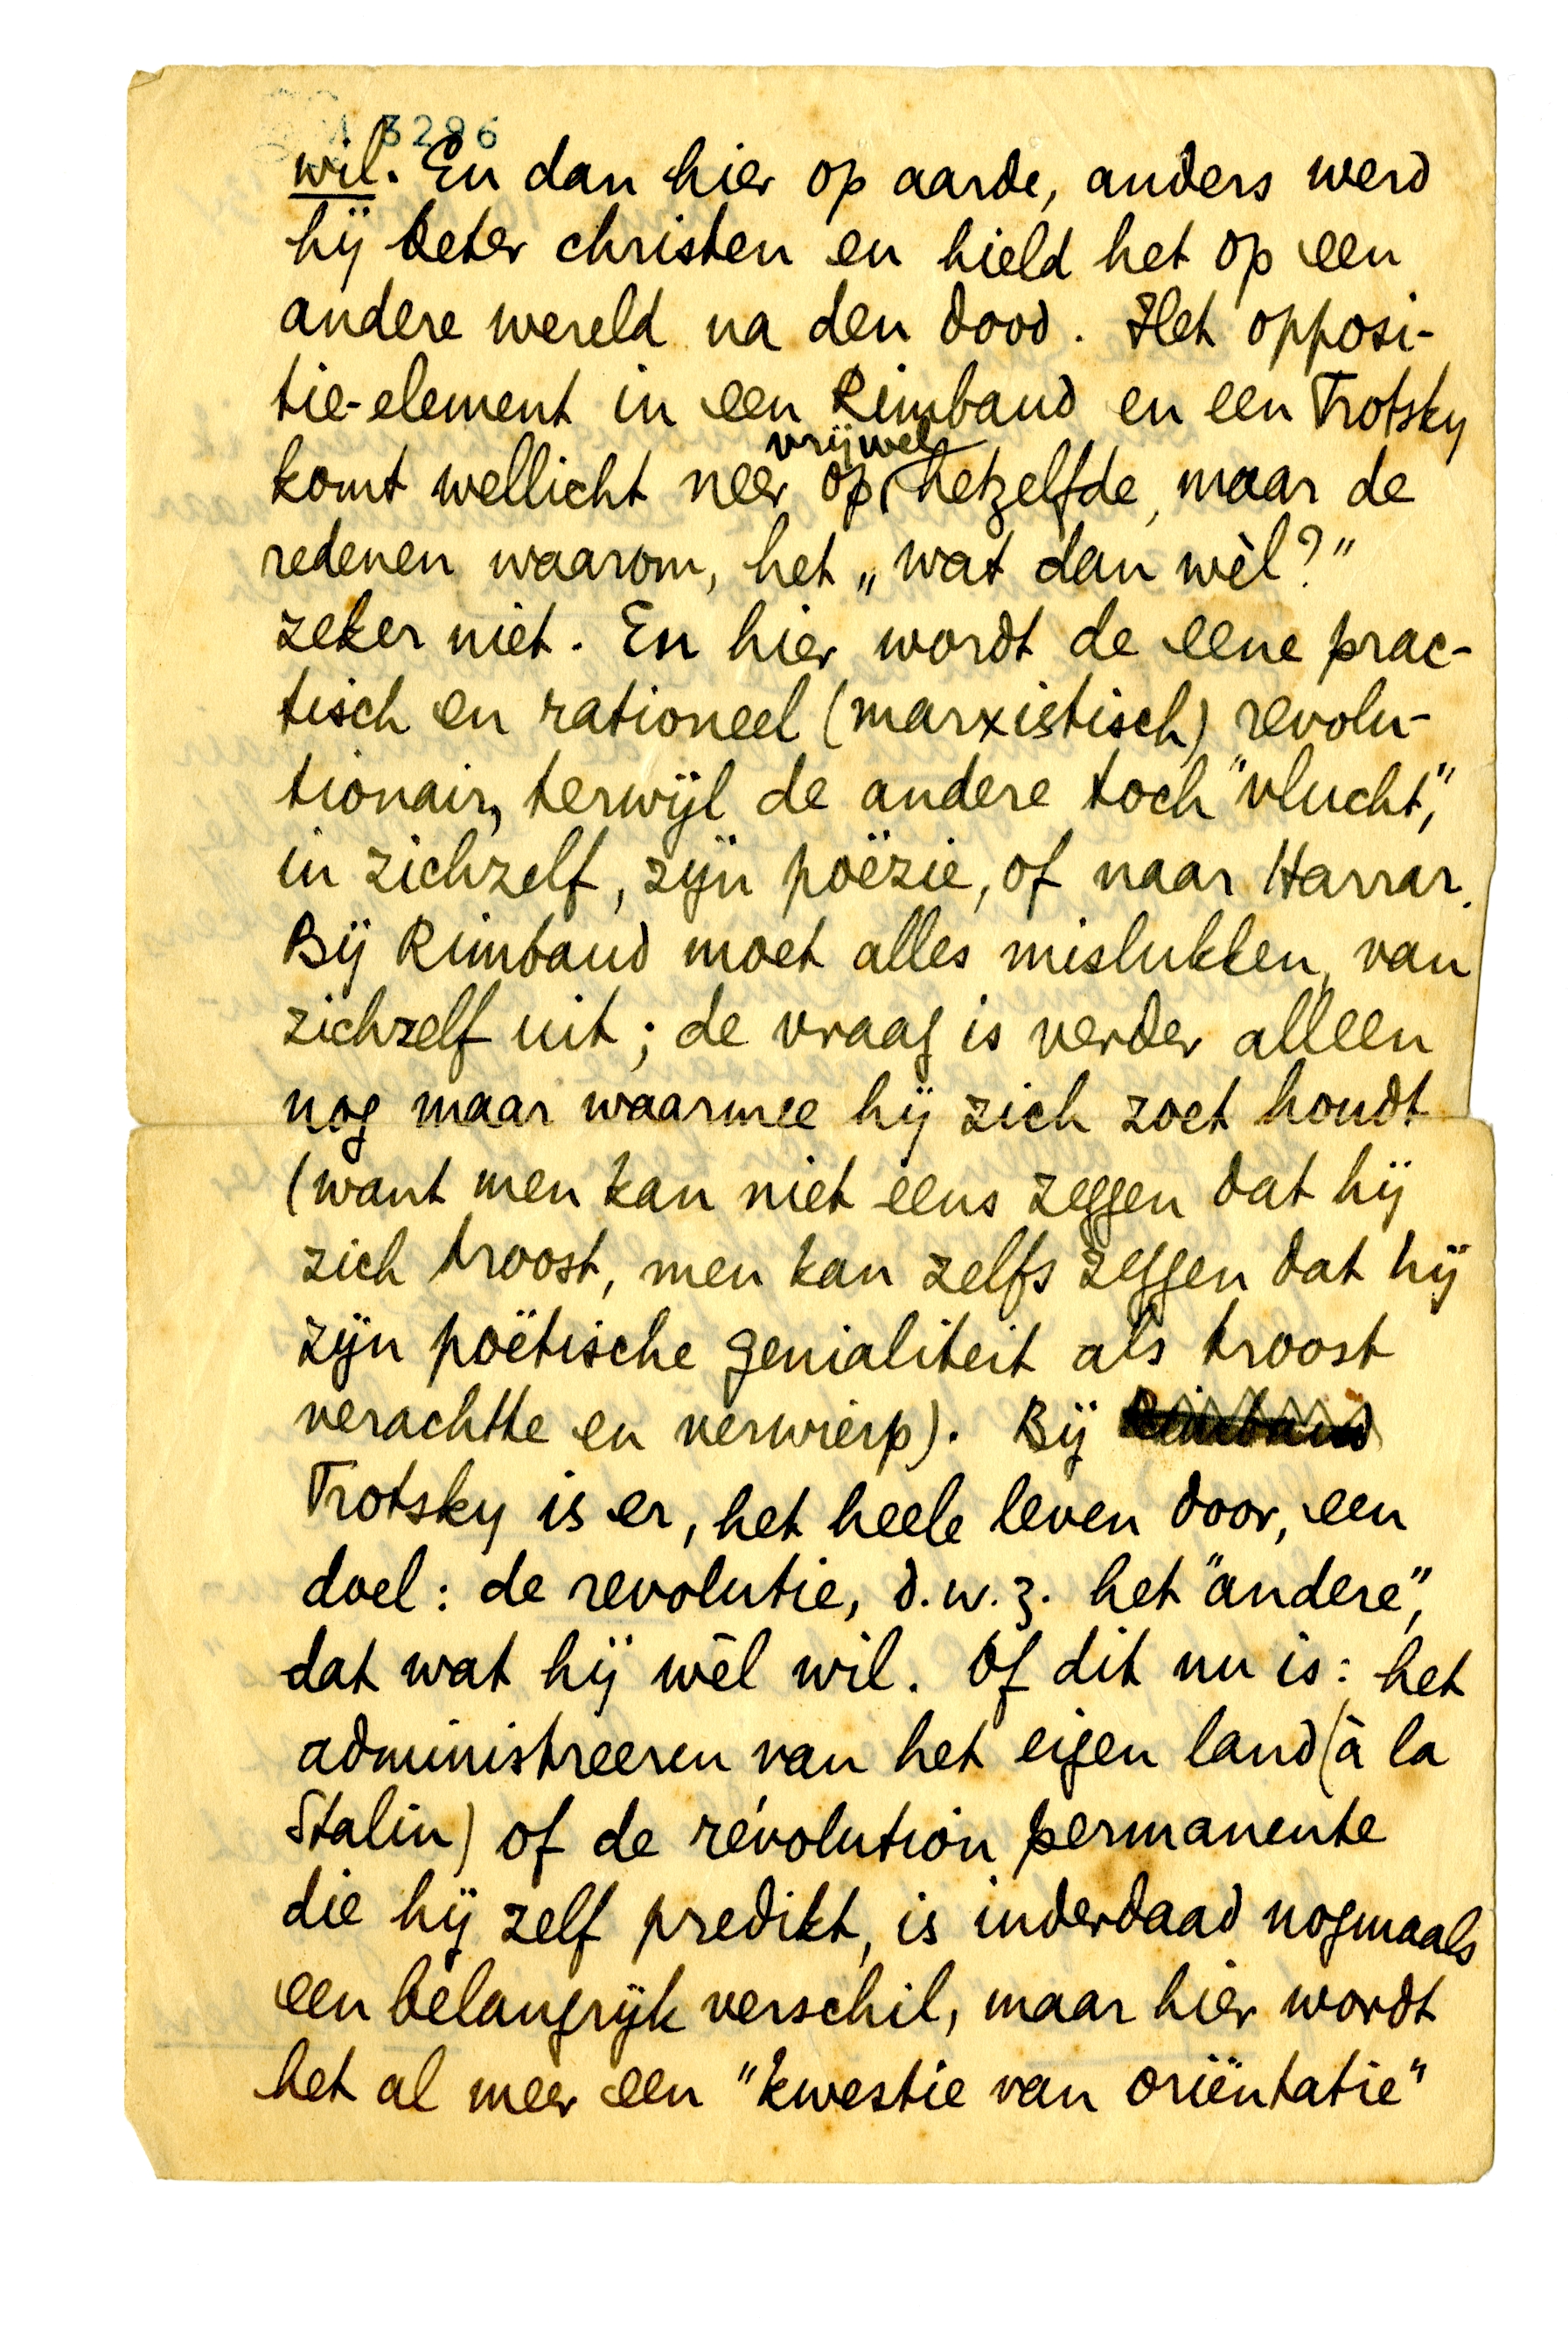 3286
wil. En dan hier op aarde, anders werd
hij beter christen en hield het op een
andere wereld na den dood. Het opposi-
tie-element in een Rimbaud en een Trotsky
vrijwel
komt wellicht neer op hetzelfde, maar de
redenen waarom, het „wat dan wèl?"
zeker niet. En hier wordt de eene prac-
tisch en rationeel (marxistisch) revolu-
tionair, terwijl de andere toch "vlucht",
in zichzelf, zijn poëzie, of naar Harrar.
Bij Rimbaud moet alles mislukken, van
zichzelf uit; de vraag is verder alleen
nog maar waarmee hij zich zoet houdt
(want men kan niet eens zeggen dat hij
zich troost, men kan zelfs zeggen dat hij
zijn poëtische genialiteit als troost
verachtte en verwierp). Bij Rimbaud
Trotsky is er, het heele leven door, een
doel: de revolutie, d.w.z. het "andere",
dat wat hij wèl wil. Of dit nu is: het
administreeren van het eigen land (à la
Stalin) of de révolution permanente
die hij zelf predikt, is inderdaad nogmaals
een belangrijk verschil, maar hier wordt
het al meer een "kwestie van oriëntatie"